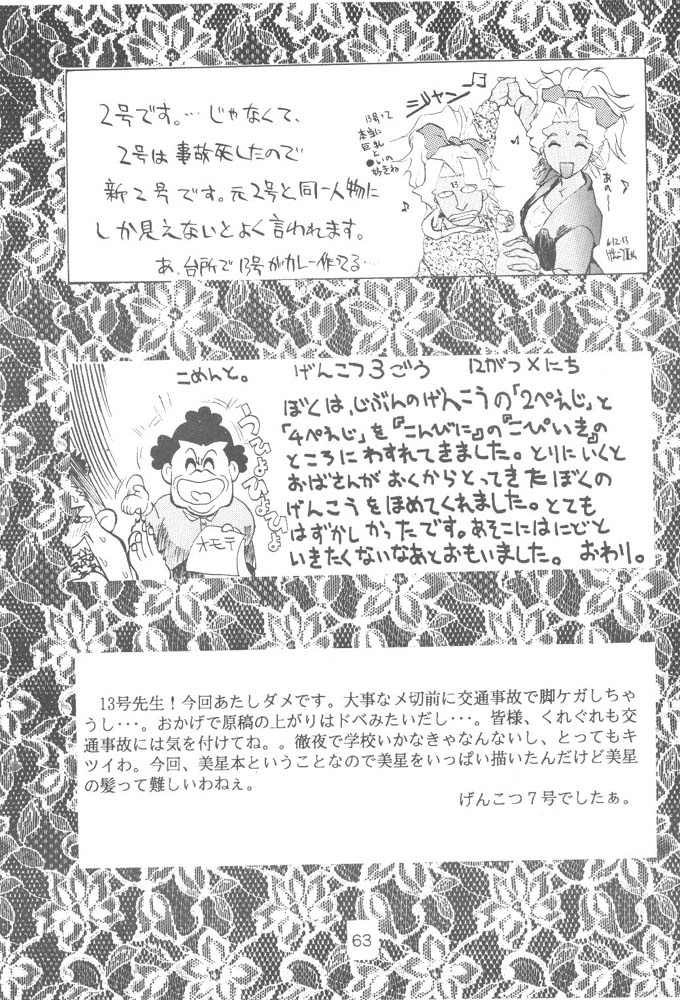 2号です。…じゃなくて、
2号は事故死したので
新2号です。元2号と同一人物に
しか見えないとよく言われます。
あ、台所で13号がカレー作てる…
ジャン
13号って
本当に
巨乳と
●いの
好きね
あの〜
こめんと。 げんこつ3ごう 12がつ×にち
ぼくは、じぶんのげんこうの「2ぺえじ」と
「4ぺえじ」を『こんびに』の『こぴいき』の
ところにわすれてきました。とりにいくと
おばさんがおくからとってきたぼくの
げんこうをほめてくれました。とても
はずかしかったです。あそこにはにどと
いきたくないなあとおもいました。 おわり。
うひょひょひょひょ
オモテ
13号先生！今回あたしダメです。大事な〆切前に交通事故で脚ケガしちゃ
うし･･･。おかげで原稿の上がりはドベみたいだし･･･。皆様、くれぐれも交
通事故には気を付けてね。。徹夜で学校いかなきゃなんないし、とってもキ
ツイわ。今回、美星本ということなので美星をいっぱい描いたんだけど美星
の髪って難しいわねぇ。
げんこつ７号でしたぁ。
63